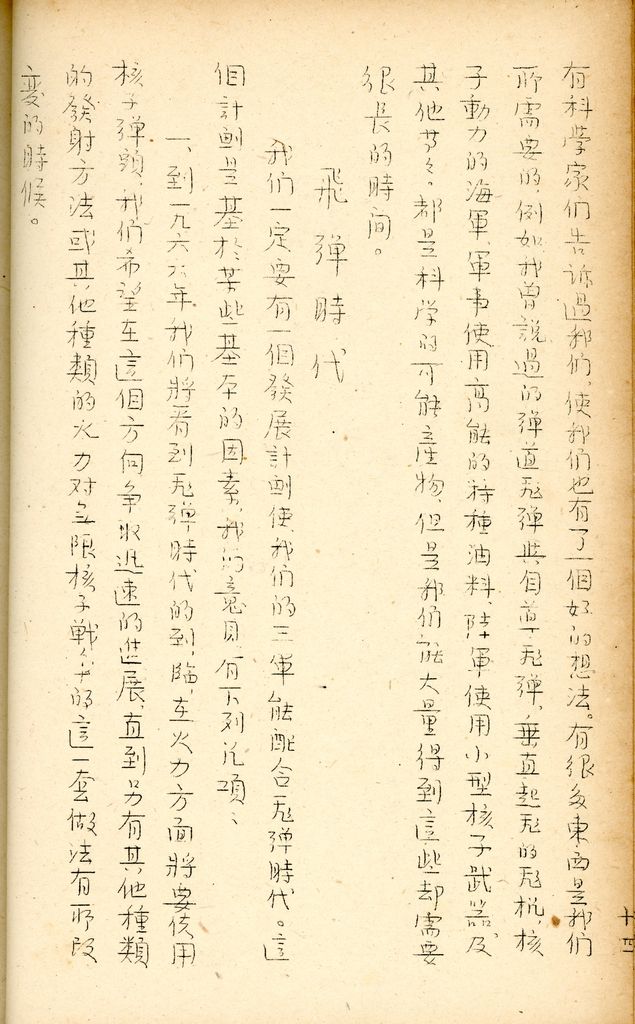 有科学家们告訴過我们,使我们也有了一個好的想法。有很多東西是我们
所需要的,例如我曾說過的弹道飛弹與自導飛弹,垂直起飛的飛机,核
子動力的海軍,軍事使用高能的特種油料,陸軍使用小型核子武器及
其他等々。都是科学的可能產物,但是我们能大量得到這些却需要
很長的時间。
飛彈時代
我们一定要有一個發展計劃使我们的三軍能配合飛弹時代。這
個計劃是基於某些基本的因素,我的意見有下列几項、
一、到一九六六年我们將看到飛弹時代的到臨,在火力方面將要使用
核子弹頭,我们希望在這個方向争取迅速的進展,直到另有其他種類
的發射方法或其他種類的火力对無限核子戰争的這一套做法有所改
变的時候。
十四